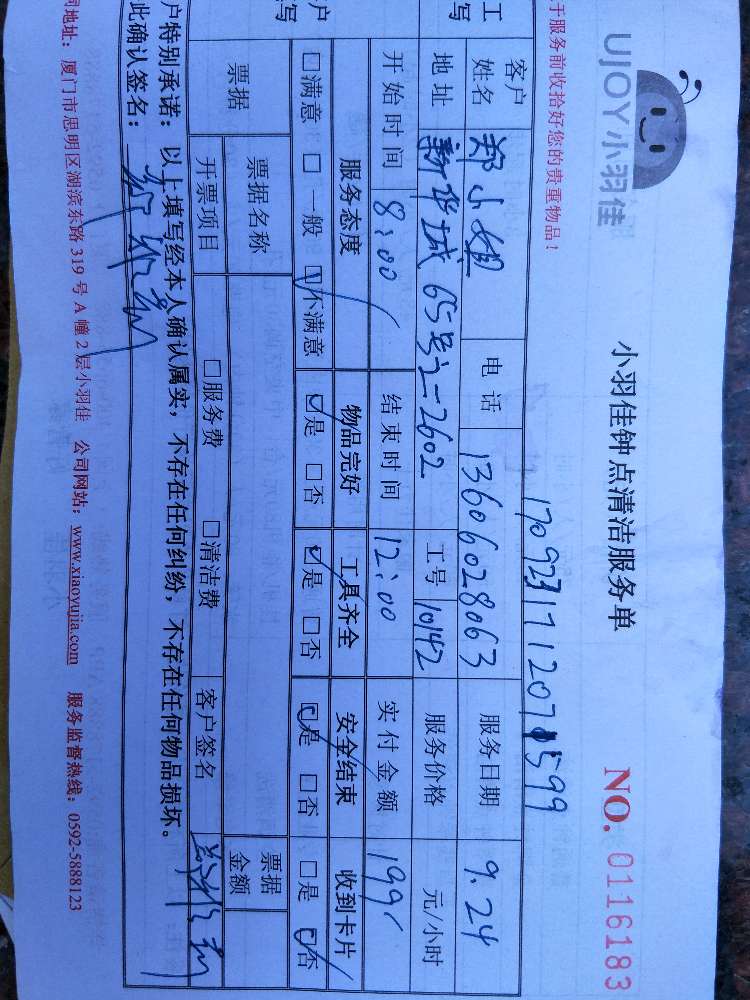 UJOY小羽佳
小羽佳钟点清洁服务单
NO. 0116183
于服务前收拾好您的贵重物品！
17092317120715 99
工
写
客户姓名 郑小姐 电话 13606028063 服务日期 9.24
地址 新华城65号2-2602 工号 10142 服务价格 元/小时
开始时间 8:00 结束时间 12:00 实付金额 199
户
写
服务态度 物品完好 工具齐全 安全结束 收到卡片
□满意 □一般 ☑不满意 ☑是 □否 ☑是 □否 ☑是 □否 □是 ☑否
票据 票据名称 票据金额
开票项目 □服务费 □清洁费 客户签名
户特别承诺：以上填写经本人确认属实，不存在任何纠纷，不存在任何物品损坏。
此确认签名：
司地址：厦门市思明区湖滨东路319号A幢2层小羽佳 公司网站：www.xiaoyujia.com 服务监督热线：0592-5888123